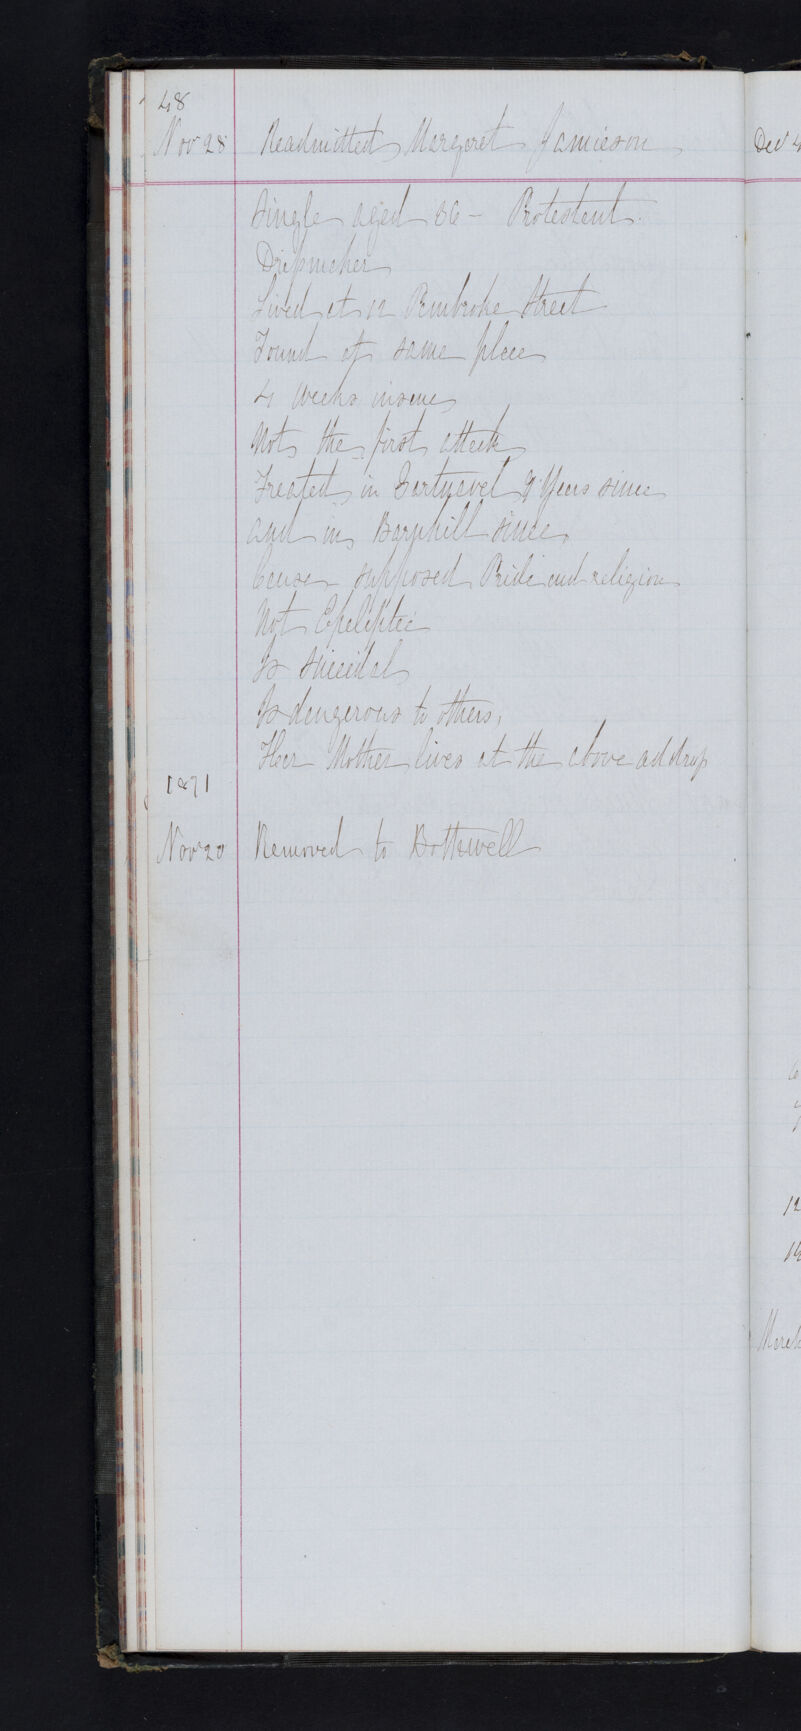 48
Nov 28 Readmitted Margaret Jamieson
Single aged 36 - Protestant.
Dressmaker
Lived at 12 Pembroke Street
Found at same place
4 weeks insane
Not the first attack
Treated in Gartnavel 9 Years since
and in Barnhill since.
Cause supposed Pride and religion
Not Epeleptic
Is Suicidal
Is dangerous to others,
Her Mother lives at the above address
1871
Nov 20 Removed to Bothwell
Dec 4
12
March